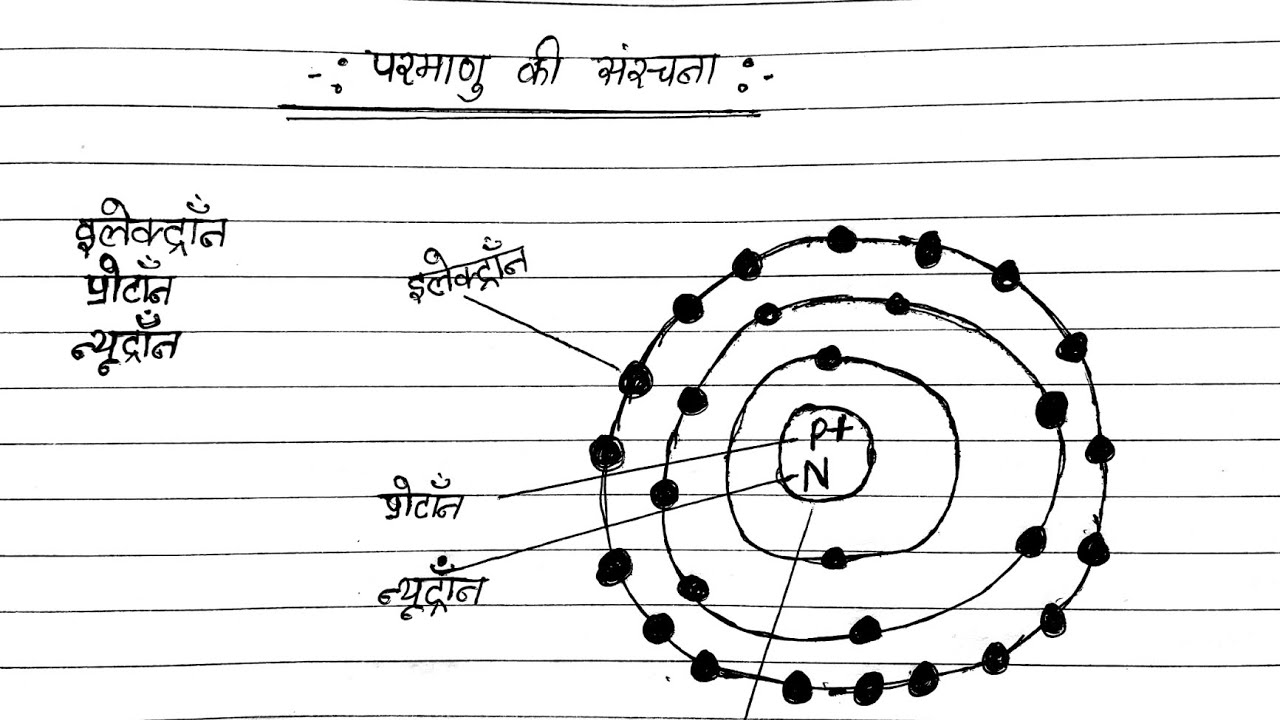 -: परमाणु की संरचना :-
इलेक्ट्रॉन
प्रोटॉन
न्यूट्रॉन
इलेक्ट्रॉन
P+
N
प्रोटॉन
न्यूट्रॉन